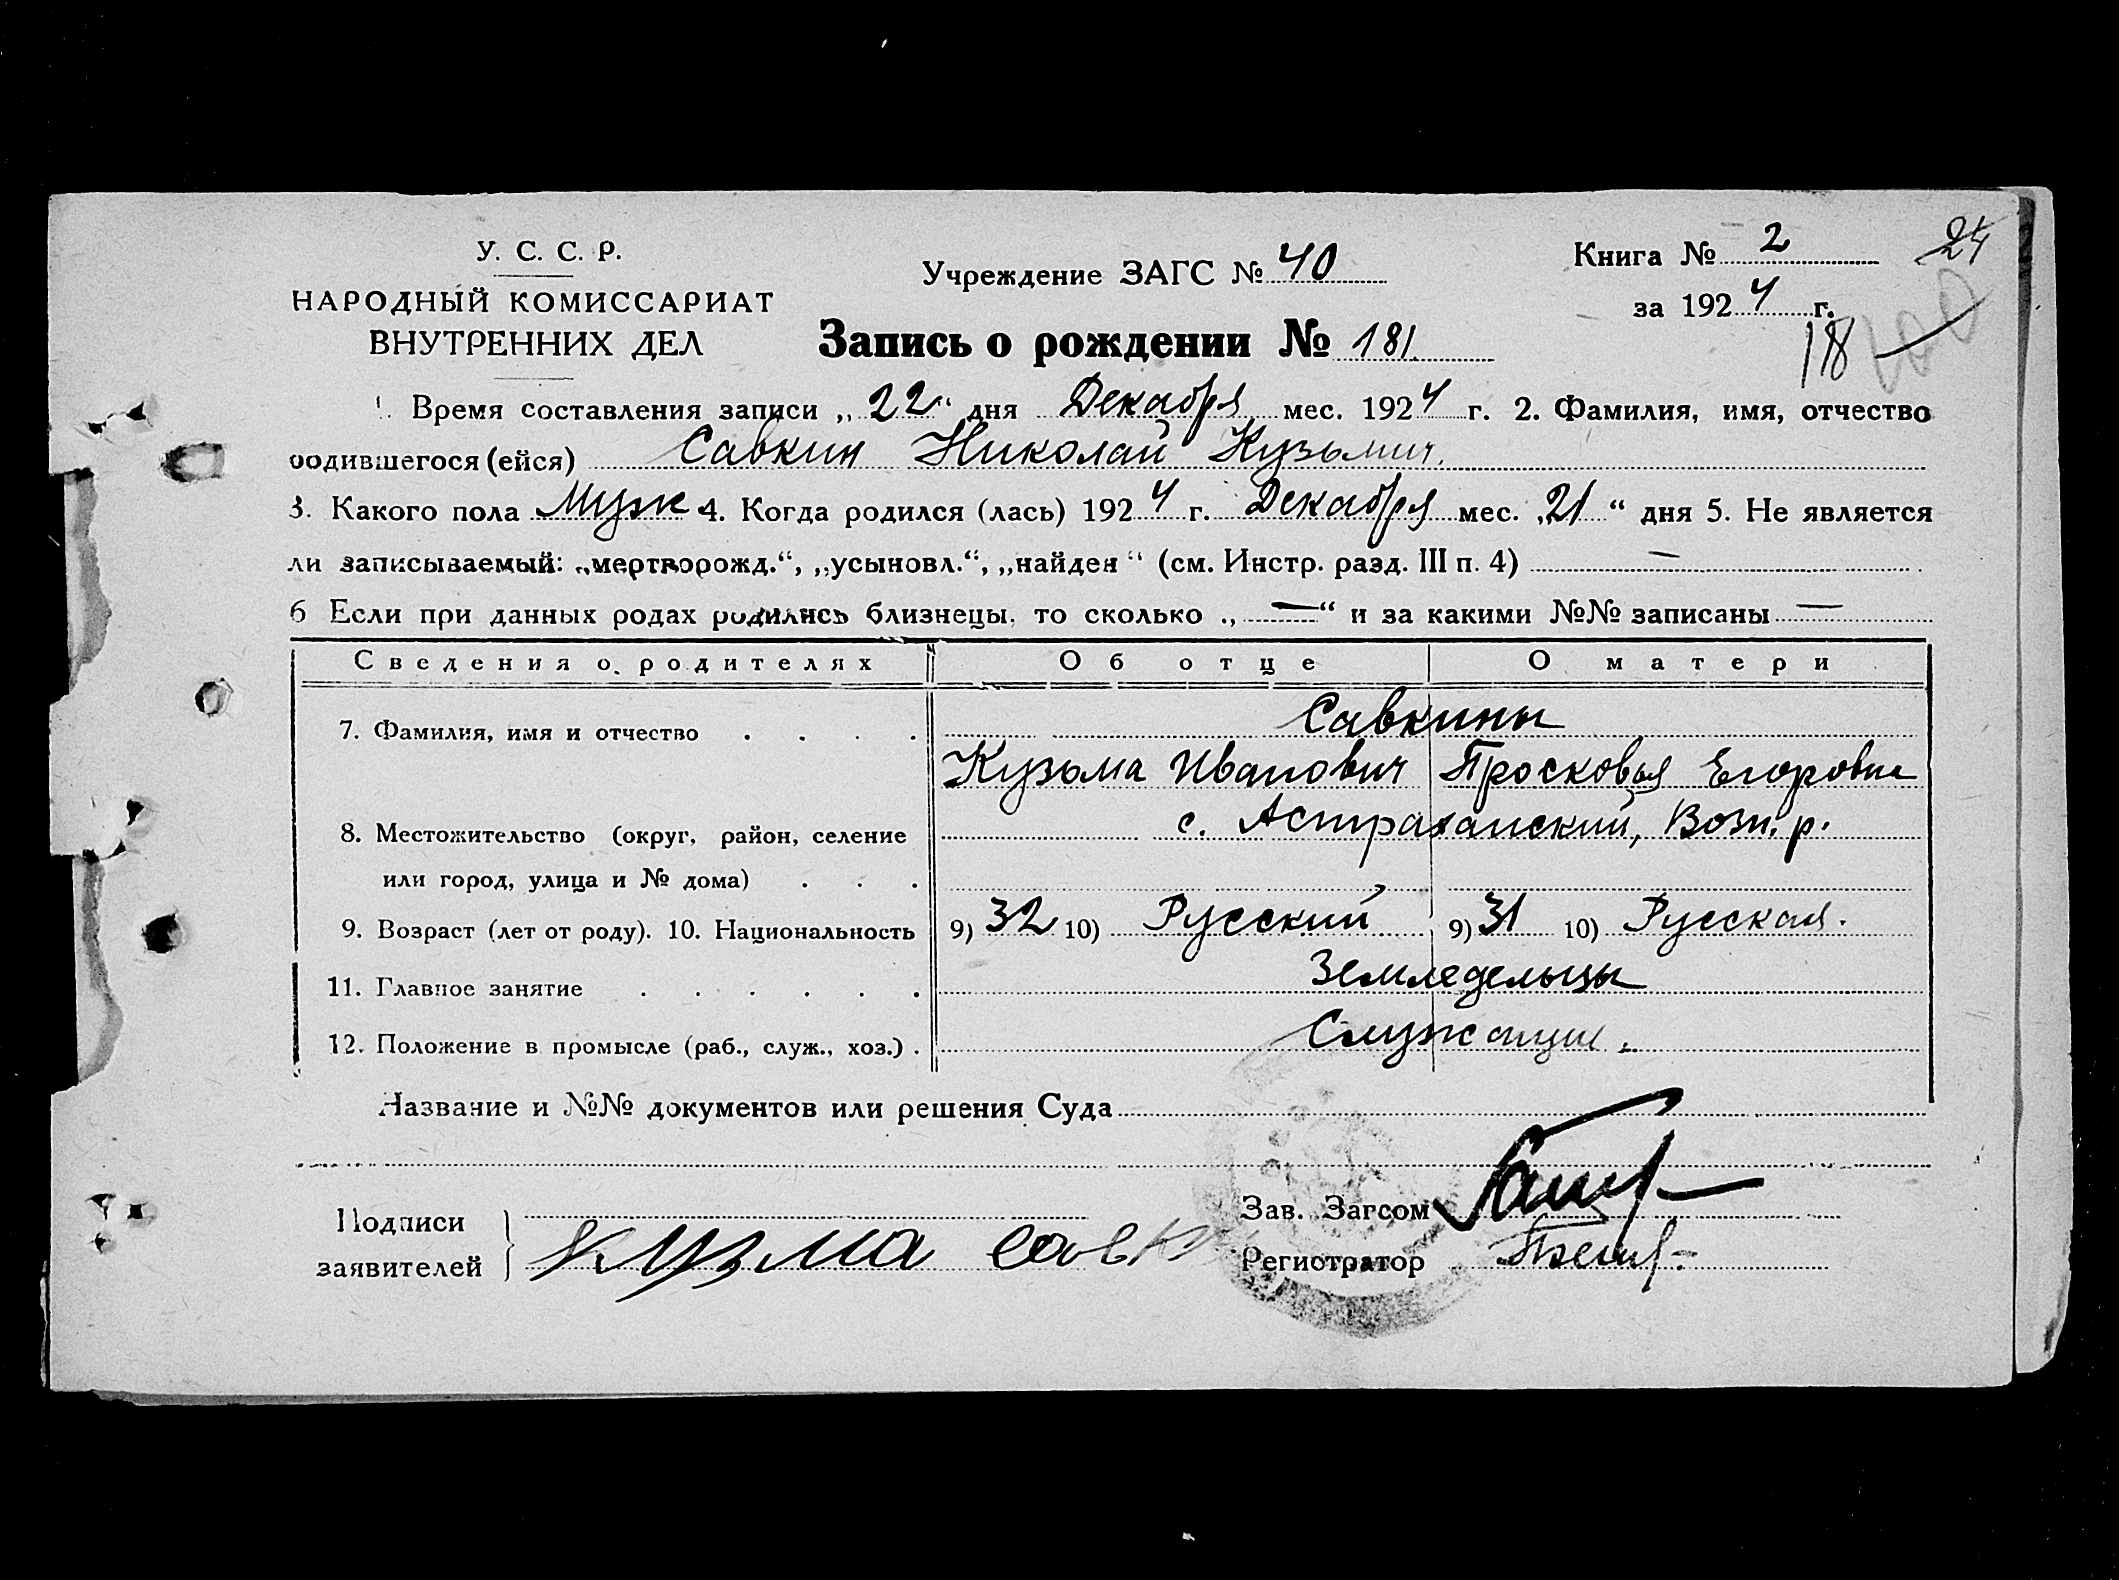 У. С. С. Р.
НАРОДНЫЙ КОМИССАРИАТ
ВНУТРЕННИХ ДЕЛ
Учреждение ЗАГС № 40
Запись о рождении № 181
Книга № 2
24
за 1924 г.
118
100
1. Время составления записи „22“ дня Декабря мес. 1924 г. 2. Фамилия, имя, отчество
родившегося (ейся) Савкин Николай Кузьмич.
3. Какого пола Муж 4. Когда родился (лась) 1924 г. Декабря мес. „21“ дня 5. Не является
ли записываемый: „мертворожд.“, „усыновл.“, „найден“ (см. Инстр. разд. III п. 4) —
6 Если при данных родах родились близнецы, то сколько „—“ и за какими №№ записаны —
Сведения о родителях Об отце О матери
7. Фамилия, имя и отчество . . . . Савкины
Кузьма Иванович Просковья Егоровна
8. Местожительство (округ, район, селение с. Астраханский, Возн. р.
или город, улица и № дома) . . .
9. Возраст (лет от роду). 10. Национальность 9) 32 10) Русский 9) 31 10) Русская.
11. Главное занятие . . . . . . Земледельцы
12. Положение в промысле (раб., служ., хоз.) . Служащие.
Название и №№ документов или решения Суда
Подписи
заявителей
Кузма Савк
Зав. Загсом
Регистратор